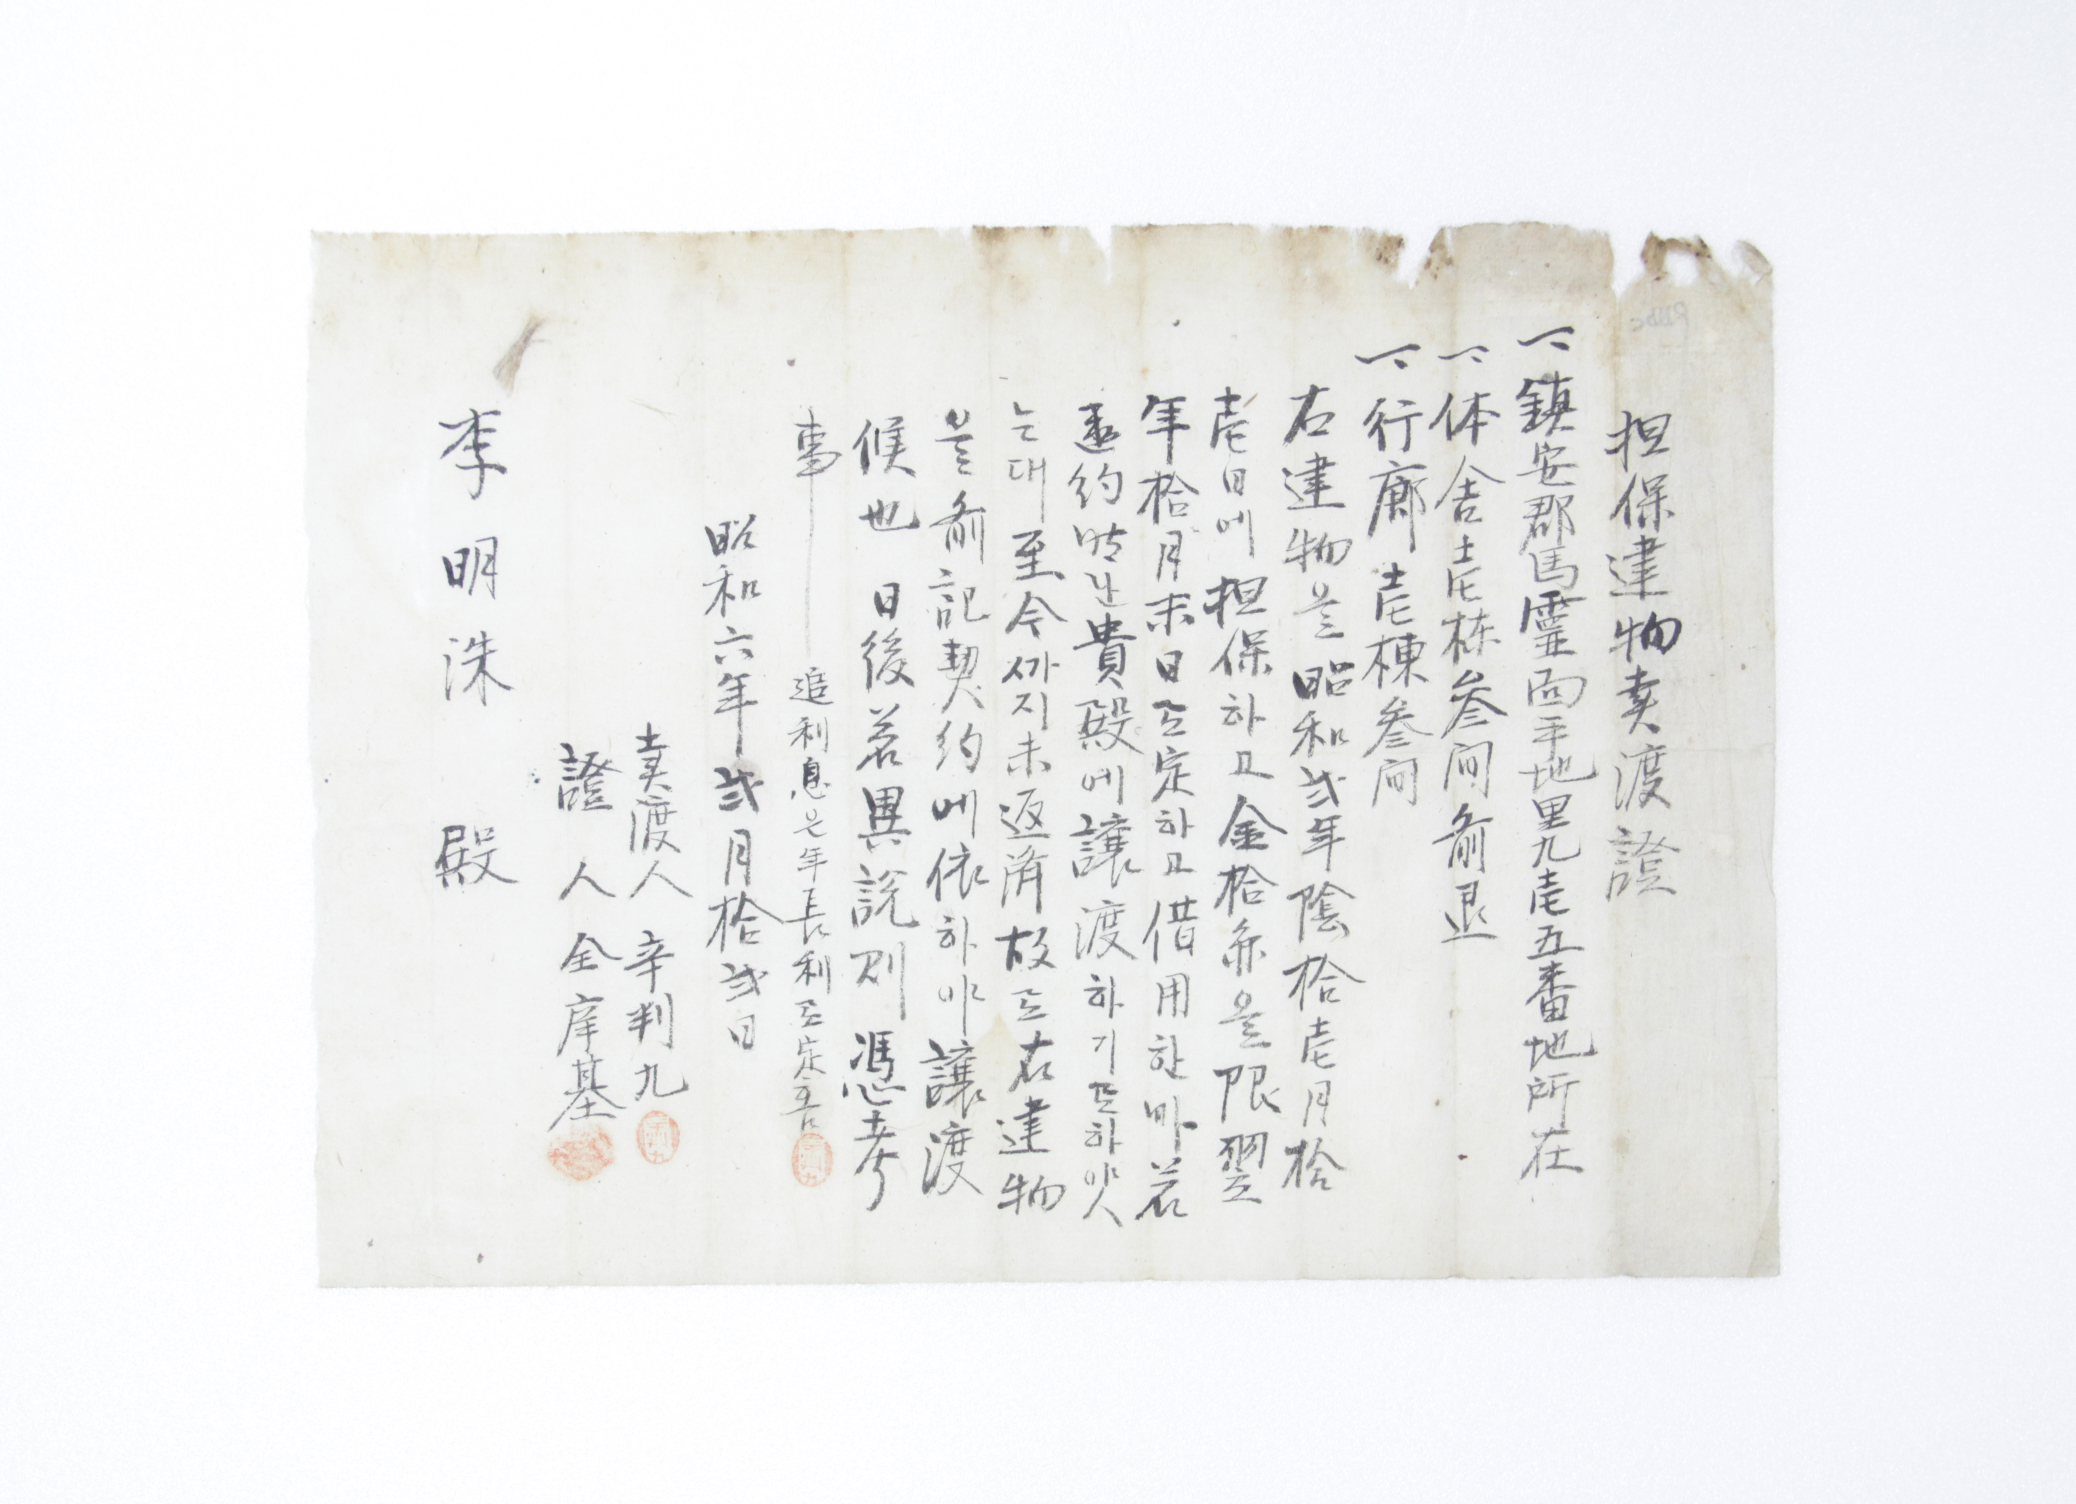 担保建物卖渡證
一、鎭安郡馬靈面平地里九壱五番地所在
一、体舍壱栋參间前退
一、行廊壱棟參间
右建物을昭和弐年陰拾壱月拾
壱日에担保하고金拾円을限翌
年拾月末日로定하고借用한바若
違約時난貴殿에讓渡하기로하얏
는대至今까지未返済故로右建物
을前記契約에依하야讓渡
候也 日後若異說則憑考
事 追利息은年長利로定홈
昭和六年弐月拾弐日
卖渡人 辛判九
證人 全庠基
李明洙 殿